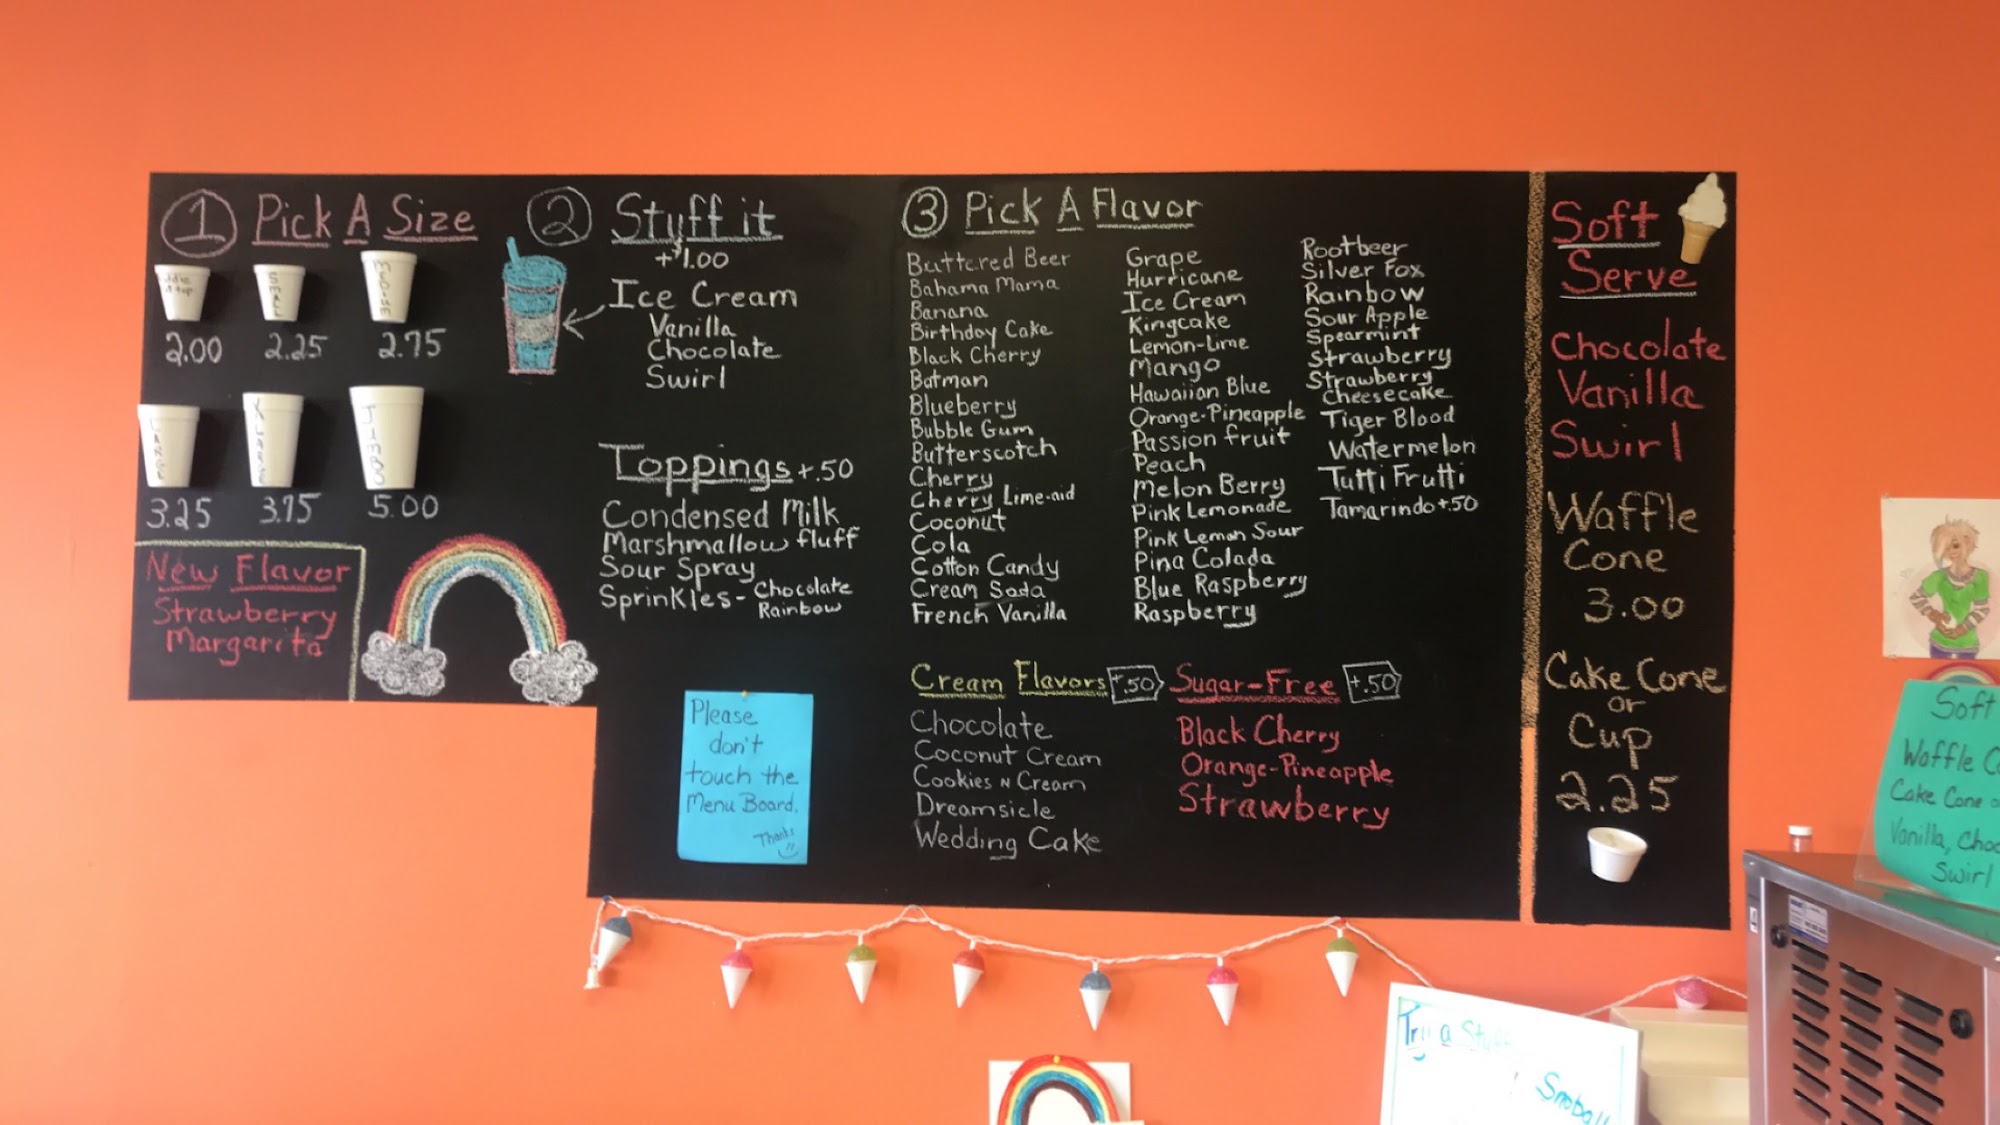 1 Pick A Size
SMALL
MEDIUM
2.00 2.25 2.75
LARGE
XLARGE
JUMBO
3.25 3.75 5.00
New Flavor
Strawberry
Margarita
2 Stuff it
+$1.00
Ice Cream
Vanilla
Chocolate
Swirl
Toppings +.50
Condensed Milk
Marshmallow fluff
Sour Spray
Sprinkles - Chocolate
Rainbow
Please
don't
touch the
Menu Board.
Thanks
3 Pick A Flavor
Buttered Beer
Bahama Mama
Banana
Birthday Cake
Black Cherry
Batman
Blueberry
Bubble Gum
Butterscotch
Cherry
Cherry Lime-aid
Coconut
Cola
Cotton Candy
Cream Soda
French Vanilla
Grape
Hurricane
Ice Cream
Kingcake
Lemon-Lime
Mango
Hawaiian Blue
Orange-Pineapple
Passion fruit
Peach
Melon Berry
Pink Lemonade
Pink Lemon Sour
Pina Colada
Blue Raspberry
Raspberry
Rootbeer
Silver Fox
Rainbow
Sour Apple
Spearmint
Strawberry
Strawberry
Cheesecake
Tiger Blood
Watermelon
Tutti Frutti
Tamarindo +.50
Cream Flavors +.50
Chocolate
Coconut Cream
Cookies N Cream
Dreamsicle
Wedding Cake
Sugar-Free +.50
Black Cherry
Orange-Pineapple
Strawberry
Soft
Serve
Chocolate
Vanilla
Swirl
Waffle
Cone
3.00
Cake Cone
or
Cup
2.25
Soft
Waffle
Cake Cone
Vanilla,
Swirl
Try a